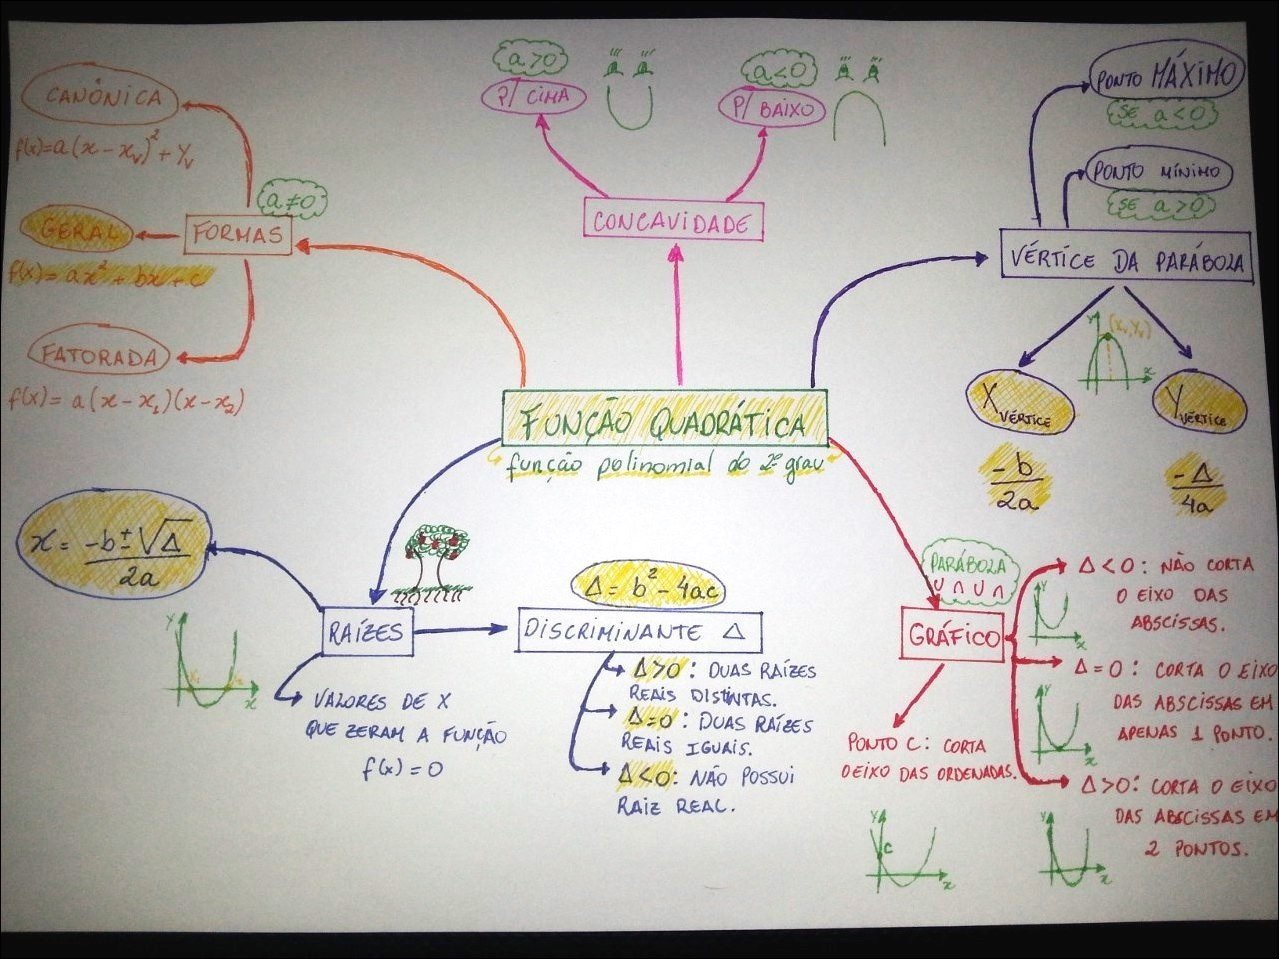 FUNÇÃO QUADRÁTICA
função polinomial do 2º grau
FORMAS
a≠0
CANÔNICA
f(x)=a(x-x_v)²+y_v
GERAL
f(x)=ax²+bx+c
FATORADA
f(x)=a(x-x₁)(x-x₂)
CONCAVIDADE
a>0
P/ CIMA
a<0
P/ BAIXO
VÉRTICE DA PARÁBOLA
PONTO MÁXIMO
SE a<0
PONTO MÍNIMO
SE a>0
y
(x_v, y_v)
x
X VÉRTICE
-b
2a
Y VÉRTICE
-Δ
4a
RAÍZES
x = -b±√Δ
2a
y
x₁
x₂
x
VALORES DE X
QUE ZERAM A FUNÇÃO
f(x)=0
Δ=b²-4ac
DISCRIMINANTE Δ
Δ>0: DUAS RAÍZES
REAIS DISTINTAS.
Δ=0: DUAS RAÍZES
REAIS IGUAIS.
Δ<0: NÃO POSSUI
RAIZ REAL.
PARÁBOLA
GRÁFICO
PONTO C: CORTA
O EIXO DAS ORDENADAS.
y
c
x
Δ<0: NÃO CORTA
O EIXO DAS
ABSCISSAS.
y
x
Δ=0: CORTA O EIXO
DAS ABSCISSAS EM
APENAS 1 PONTO.
y
x
Δ>0: CORTA O EIXO
DAS ABSCISSAS EM
2 PONTOS.
y
x